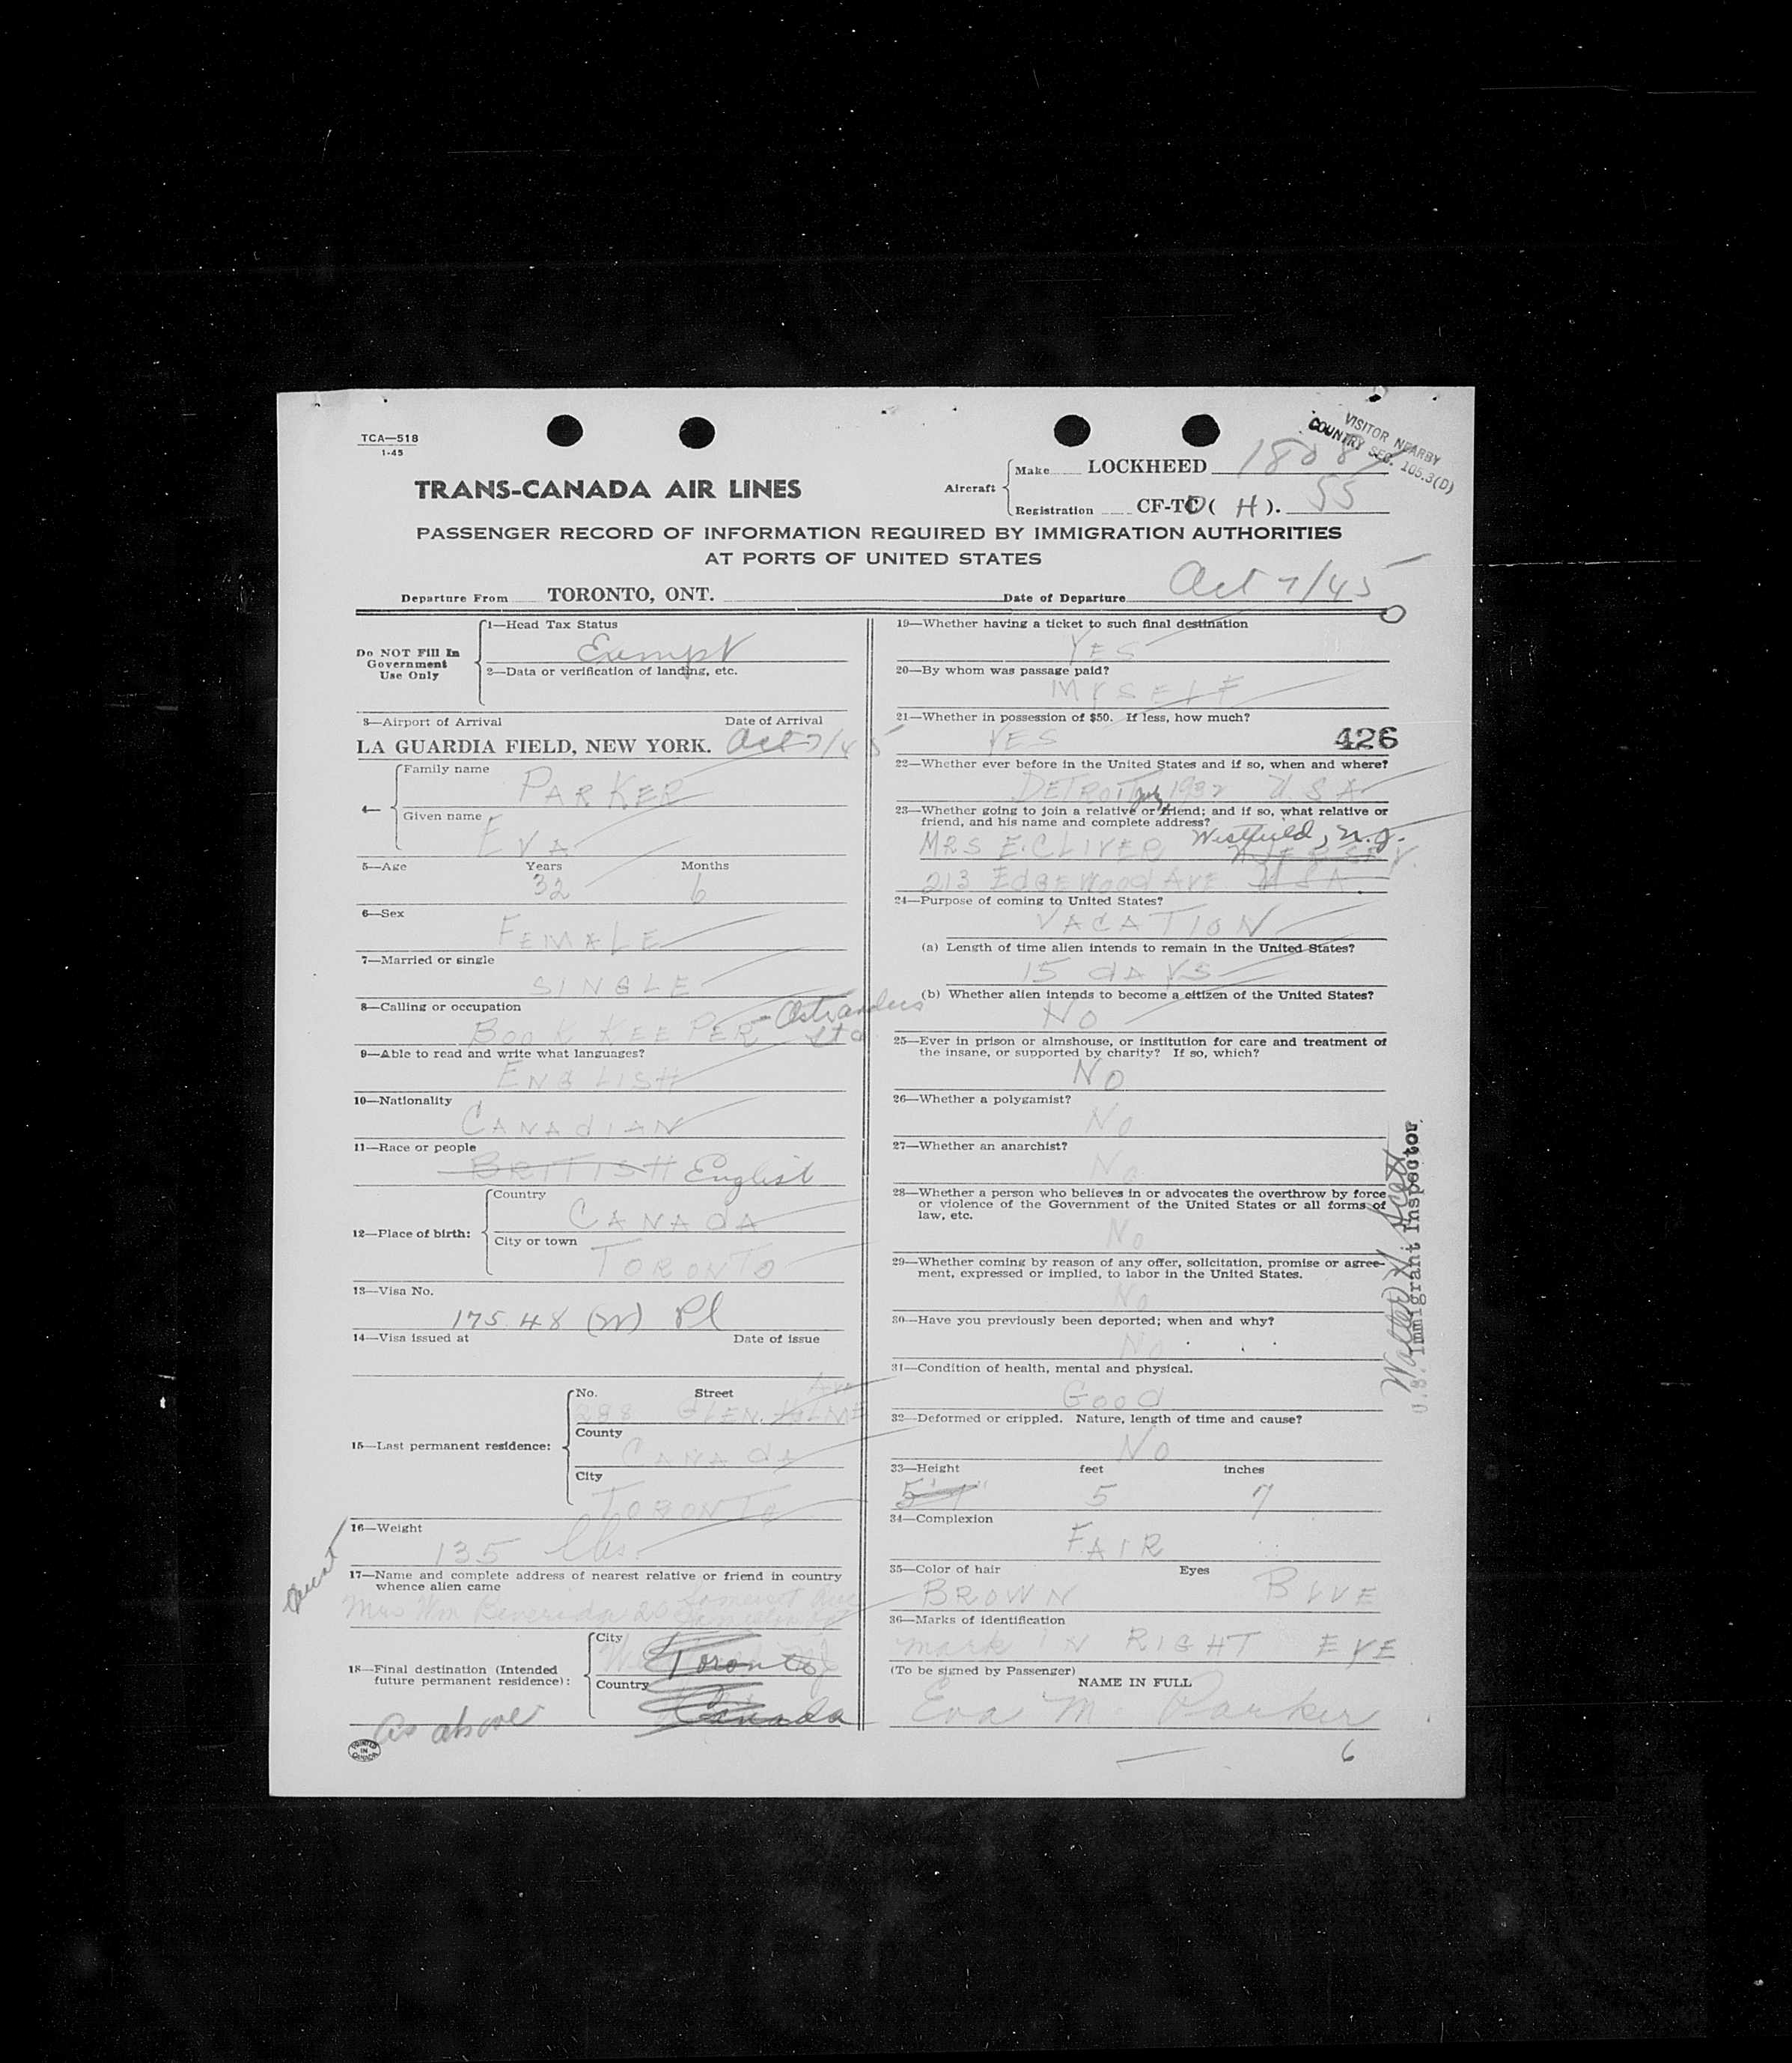 TCA—518
1-45
VISITOR NEARBY
COUNTRY SEC. 105.3(D)
TRANS-CANADA AIR LINES
Aircraft
Make LOCKHEED
Registration CF-TC ( H ). 55
PASSENGER RECORD OF INFORMATION REQUIRED BY IMMIGRATION AUTHORITIES
AT PORTS OF UNITED STATES
Departure From TORONTO, ONT. Date of Departure Oct 7/45
Do NOT Fill In
Government
Use Only
1—Head Tax Status
Exempt
2—Data or verification of landing, etc.
3—Airport of Arrival Date of Arrival
LA GUARDIA FIELD, NEW YORK. Oct 7/45
4—
Family name
PARKER
Given name
EVA
5—Age Years Months
32 6
6—Sex
FEMALE
7—Married or single
SINGLE
8—Calling or occupation
BOOK KEEPER - Ostranders
Ltd
9—Able to read and write what languages?
ENGLISH
10—Nationality
CANADIAN
11—Race or people
BRITISH English
12—Place of birth:
Country
CANADA
City or town
TORONTO
13—Visa No.
175.48 (W) Pl
14—Visa issued at Date of issue
15—Last permanent residence:
No. Street Ave
298 GLEN HOLME
County
CANADA
City
TORONTO
16—Weight
135 lbs.
17—Name and complete address of nearest relative or friend in country
whence alien came
Aunt
Mrs Wm 20 Somerset Ave
18—Final destination (Intended
future permanent residence):
City
Toronto
Country
Canada
As above
PRINTED
IN
CANADA
19—Whether having a ticket to such final destination
YES
20—By whom was passage paid?
MYSELF
21—Whether in possession of $50. If less, how much?
YES 426
22—Whether ever before in the United States and if so, when and where?
DETROIT July 1932 U.S.A
23—Whether going to join a relative or friend; and if so, what relative or
friend, and his name and complete address?
MRS E. CLIVER Westfield, N.J.
213 EDGEWOOD AVE U S A.
24—Purpose of coming to United States?
VACATION
(a) Length of time alien intends to remain in the United States?
15 DAYS
(b) Whether alien intends to become a citizen of the United States?
NO
25—Ever in prison or almshouse, or institution for care and treatment of
the insane, or supported by charity? If so, which?
NO
26—Whether a polygamist?
No
27—Whether an anarchist?
No
28—Whether a person who believes in or advocates the overthrow by force
or violence of the Government of the United States or all forms of
law, etc.
No
29—Whether coming by reason of any offer, solicitation, promise or agree-
ment, expressed or implied, to labor in the United States.
No
30—Have you previously been deported; when and why?
No
31—Condition of health, mental and physical.
GOOD
32—Deformed or crippled. Nature, length of time and cause?
NO
33—Height feet inches
5 7
34—Complexion
FAIR
35—Color of hair Eyes
BROWN BLUE
36—Marks of identification
mark IN RIGHT EYE
(To be signed by Passenger)
NAME IN FULL
Eva M Parker
6
Walter H Scott
U.S. Immigrant Inspector.